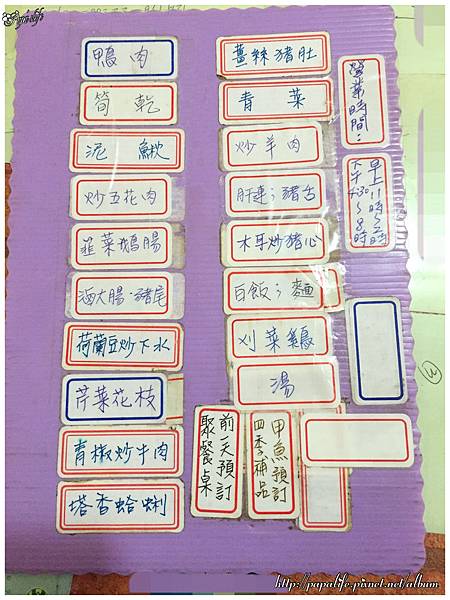 Papalife
鴨肉
筍乾
泥鰍
炒五花肉
韮菜鵝腸
滷大腸.豬尾
荷蘭豆炒下水
芹菜花枝
青椒炒牛肉
塔香蛤蜊
薑絲豬肚
青菜
炒羊肉
肝連;豬舌
木耳炒豬心
白飯;麵
刈菜雞
湯
前一天預訂
聚餐桌
甲魚預訂
四季補品
營業時間:
早上11時~2時
下午4:30~8時
http://papalife.pixnet.net/album